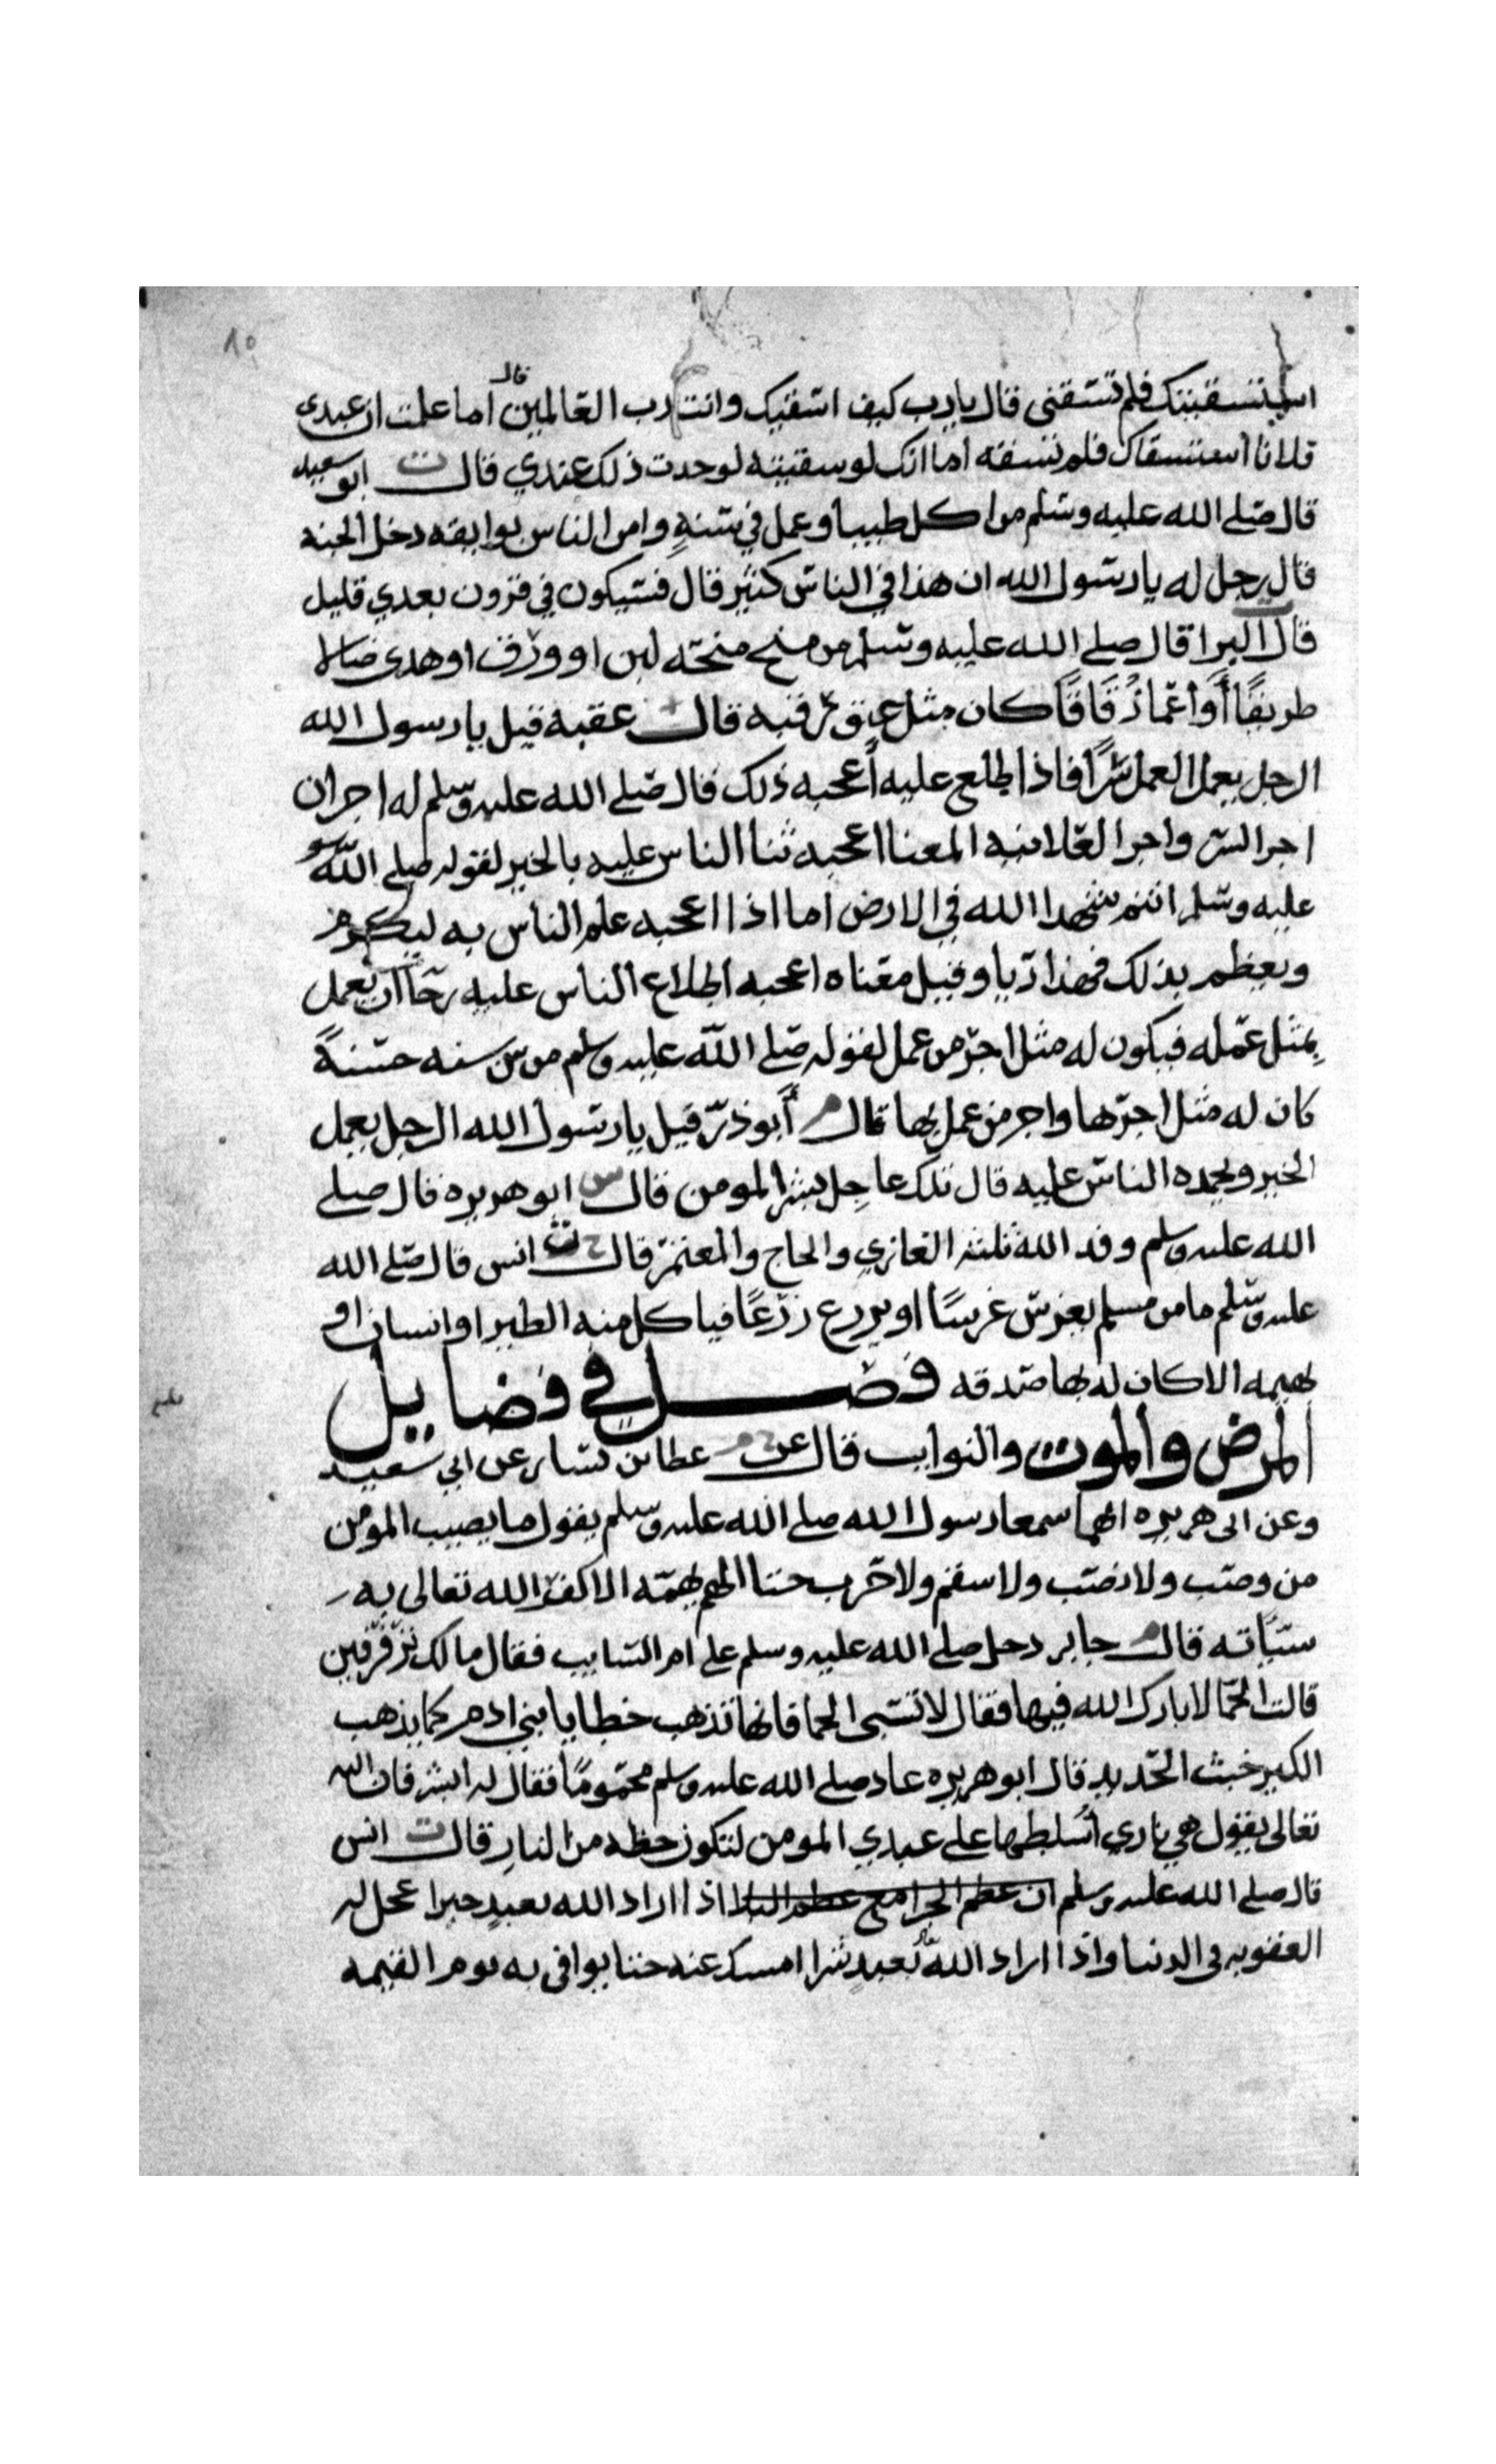 استسقيتك فلم تسقني قال يا رب كيف اسقيك وانت رب العالمين قال اما علمت ان عبدي
فلانا استسقاك فلم تسقه اما انك لو سقيته لوجدت ذلك عندي قال ت ابو سعيد
قال صلى الله عليه وسلم من اكل طيبا وعمل في سنةٍ وامن الناس بوايقه دخل الجنة
قال رجل له يا رسول الله ان هذا في الناس كثير قال فسيكون في قرون بعدي قليل
قال ت البرا قال صلى الله عليه وسلم من منح منحة لبن او ورق او هدى ضالا
طريقًا أو أعمًا زُقَاقًا كان مثل عتق رقبه قال عقبة قيل يا رسول الله
الرجل يعمل العمل سرًا فاذا اطلع عليه أعجبه ذلك قال صلى الله عليه وسلم له اجران
اجر السر واجر العلانيه المعنا اعجبه ثنا الناس عليه بالخير لقوله صلى الله
عليه وسلم انتم شهدا الله في الارض اما اذا اعجبه علم الناس به ليكرم
ويعظم بذلك فهذا ريا وقيل معناه اعجبه اطلاع الناس عليه رجا ان يعمل
بمثل عمله فيكون له مثل اجر من عمل لقوله صلى الله عليه وسلم من سن سنه حسنةً
كان له مثل اجرها واجر من عمل بها قال م أبو ذر قيل يا رسول الله الرجل يعمل
الخير ويحمده الناس عليه قال تلك عاجل بشرا المومن قال س ابو هريره قال صلى
الله عليه وسلم وفد الله ثلثه الغازي والحاج والمعتمر قال خ ت انس قال صلى الله
عليه وسلم ما من مسلم يغرس غرسًا او يزرع زرعًا فياكل منه الطير او انسان او
بهيمه الا كان له بها صدقه فصل في فضايل
المرض والموت والنوايب قال خ م عن عطا بن يسار عن ابي سعيد
وعن ابى هريره انهما سمعا رسول الله صلى الله عليه وسلم يقول ما يصيب المومن
من وصب ولا نصب ولا سقم ولا حزن حتا الهم يهمه الا كفر الله تعالى به
سيّاته قال م جابر دخل صلى الله عليه وسلم على ام السايب فقال مالك تزفزفين
قالت الحمّا لا بارك الله فيها فقال لا تسبى الحما فانها تذهب خطايا بني ادم كما يذهب
الكير خبث الحديد قال ابو هريره عاد صلى الله عليه وسلم محمومًا فقال له ابشر فان الله
تعالى يقول هي ناري أُسلطها على عبدي المومن لتكون حظه من النار قال ت انس
قال صلى الله عليه وسلم ان عظم الجزا مع عظم البلا اذا اراد الله بعبدٍ خيرا عجل له
العقوبه في الدنيا واذا اراد الله بعبدٍ شرا امسك عنه حتا يوافى به يوم القيمه